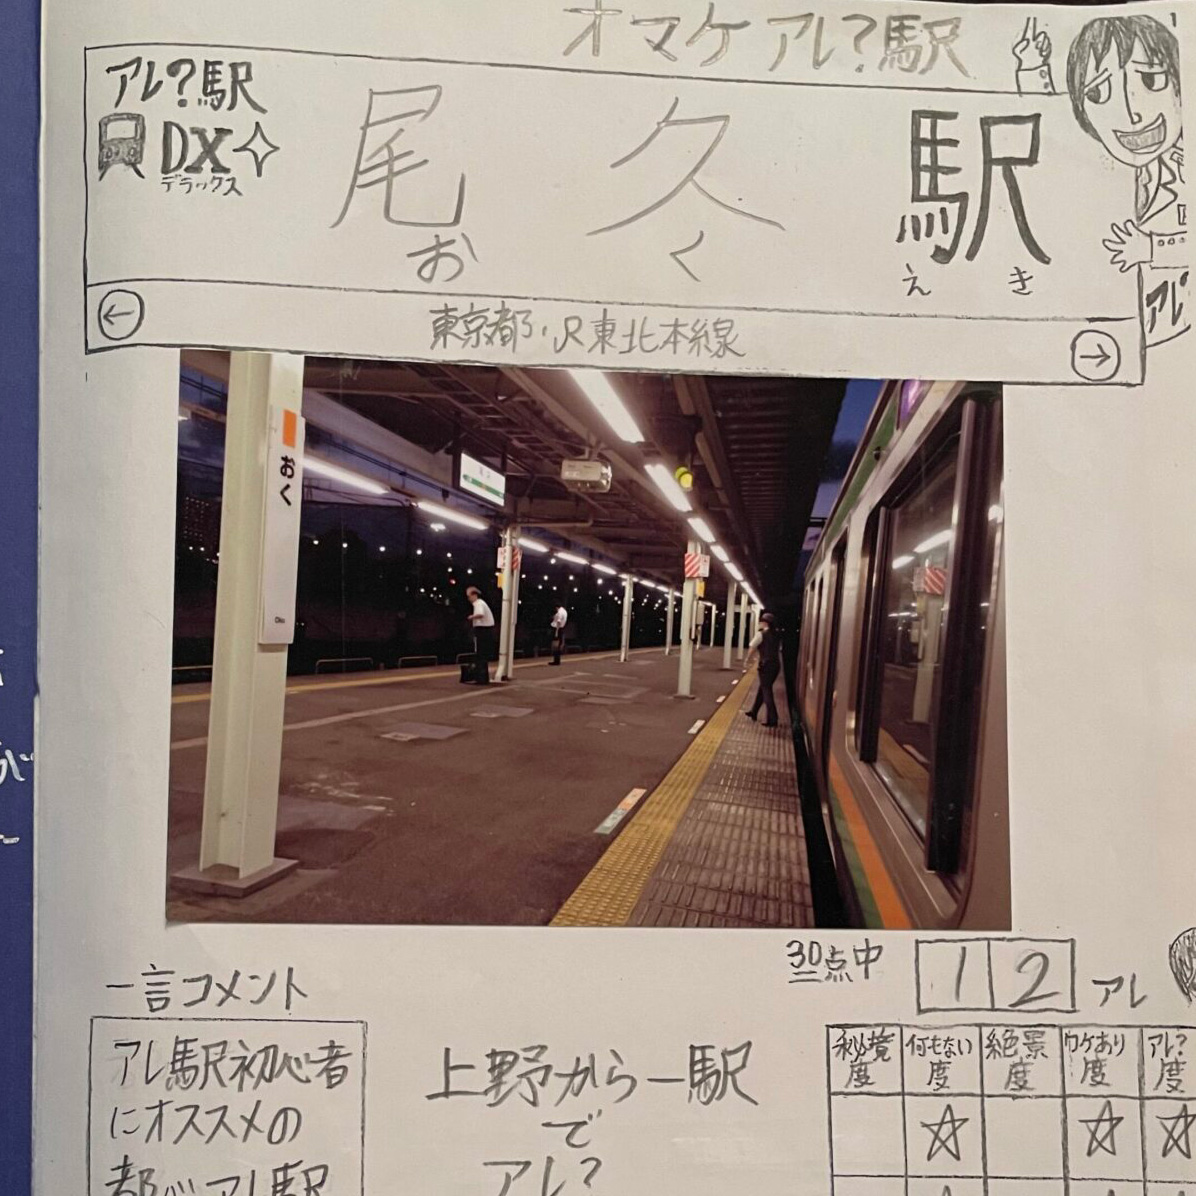 オマケアレ?駅
アレ?駅
DX
デラックス
尾久駅
おくえき
←
東京都・JR東北本線
→
アレ
おく
Oku
30点中
12
アレ
一言コメント
アレ駅初心者
にオススメの
都心アレ駅
上野から一駅
で
アレ?
秘境度
何もない度
絶景度
ワケあり度
アレ?度